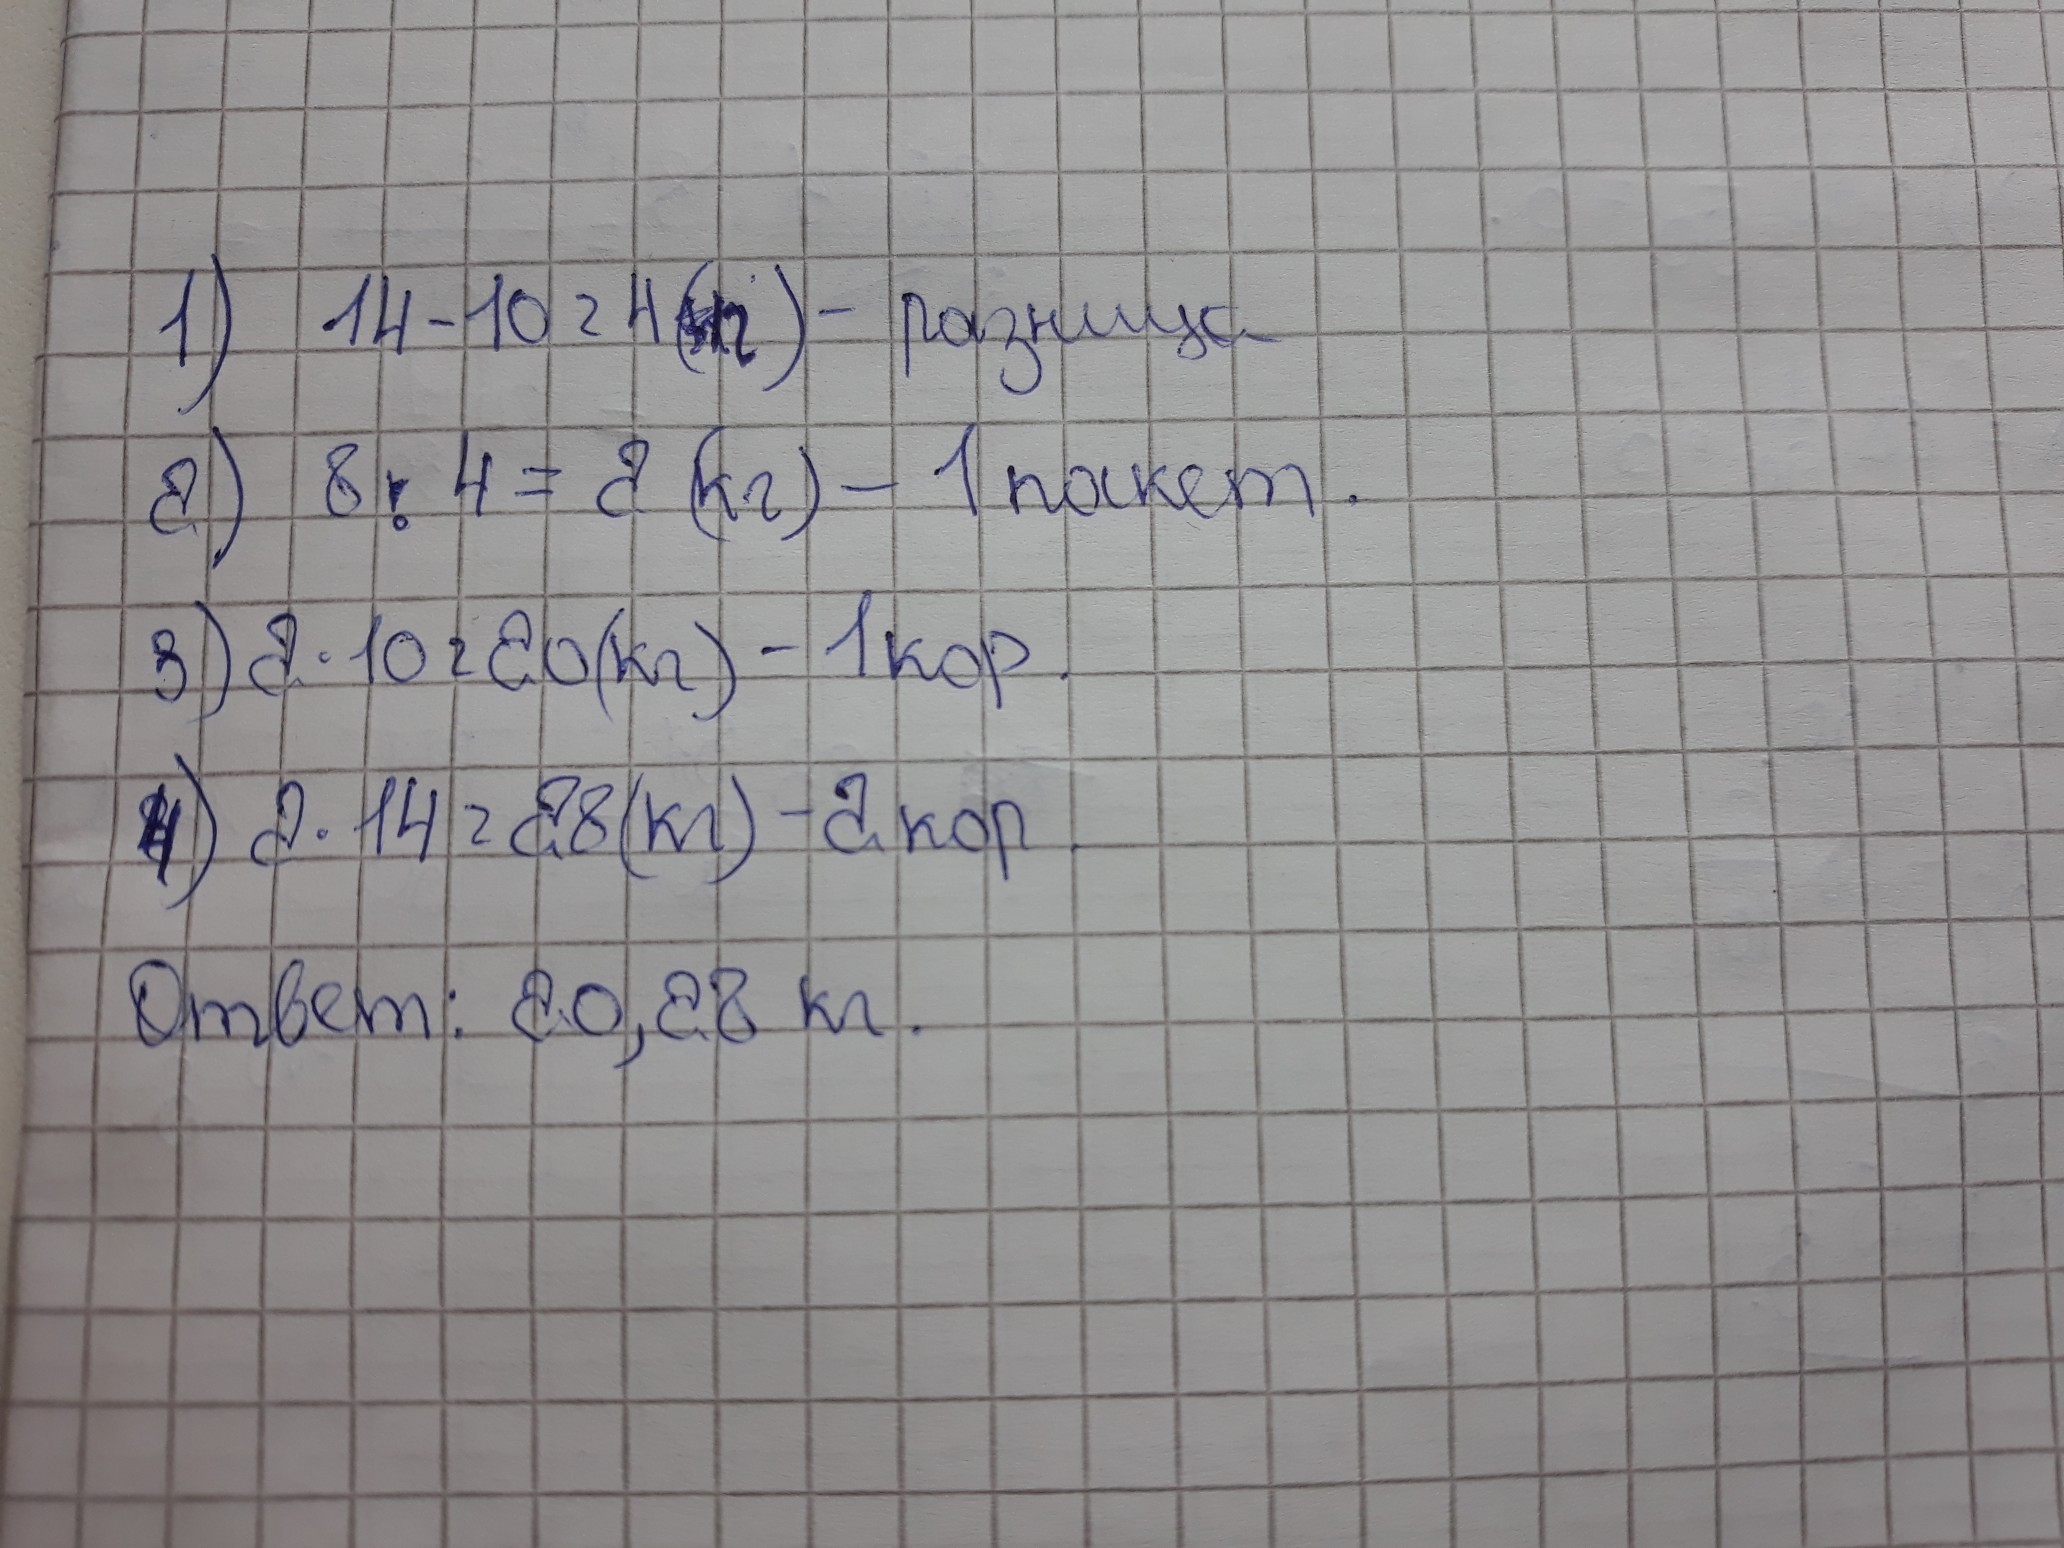 1) 14-10=4(кг)- разница
2) 8:4=2(кг)-1пакет.
3) 2·10=20(кг)-1кор.
4) 2·14=28(кг)-2кор.
Ответ: 20,28 кг.